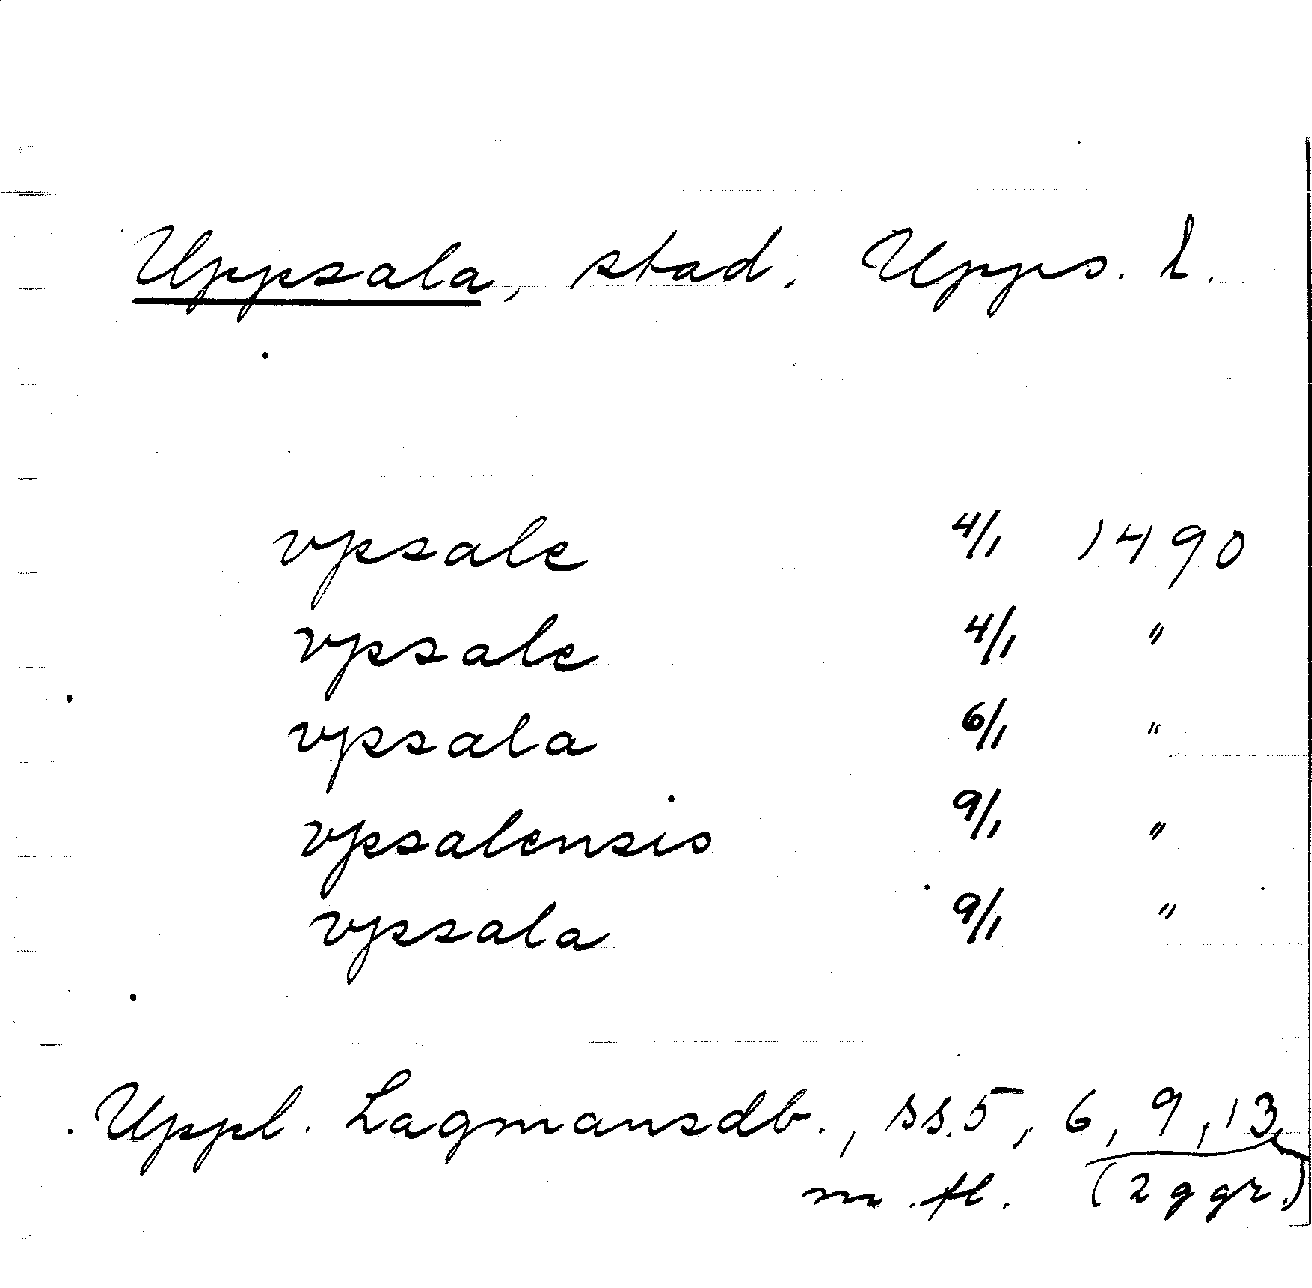 Uppsala, stad. Upps. l.
vpsale 4/1 1490
vpsale 4/1 "
vpsala 6/1 "
vpsalensis 9/1 "
vpsala 9/1 "
Uppl. Lagmansdb., ss. 5, 6, 9, 13
m. fl. (2 ggr.)